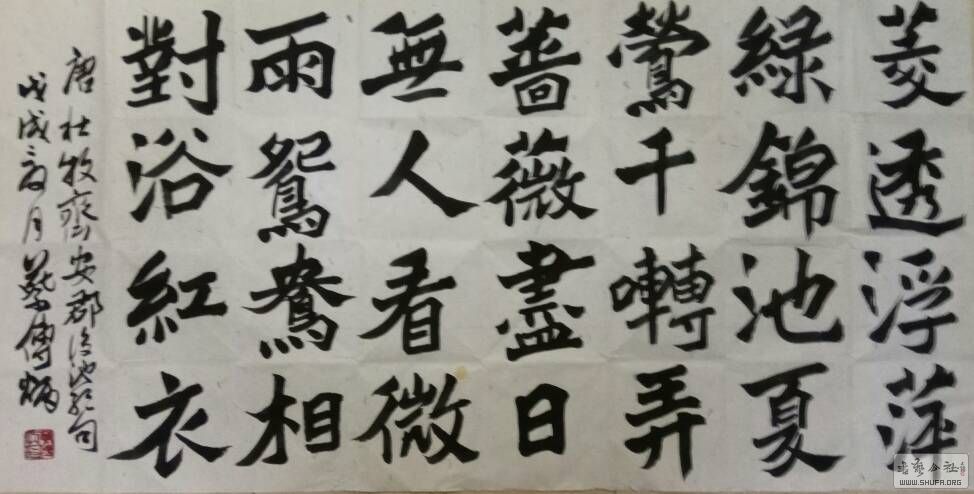 菱透浮萍
綠錦池夏
鶯千囀弄
薔薇盡日
無人看微
雨鴛鴦相
對浴紅衣
唐杜牧齊安郡後池絕句
戊戌之夏月蔡傳炳
書藝公社
WWW.SHUFA.ORG